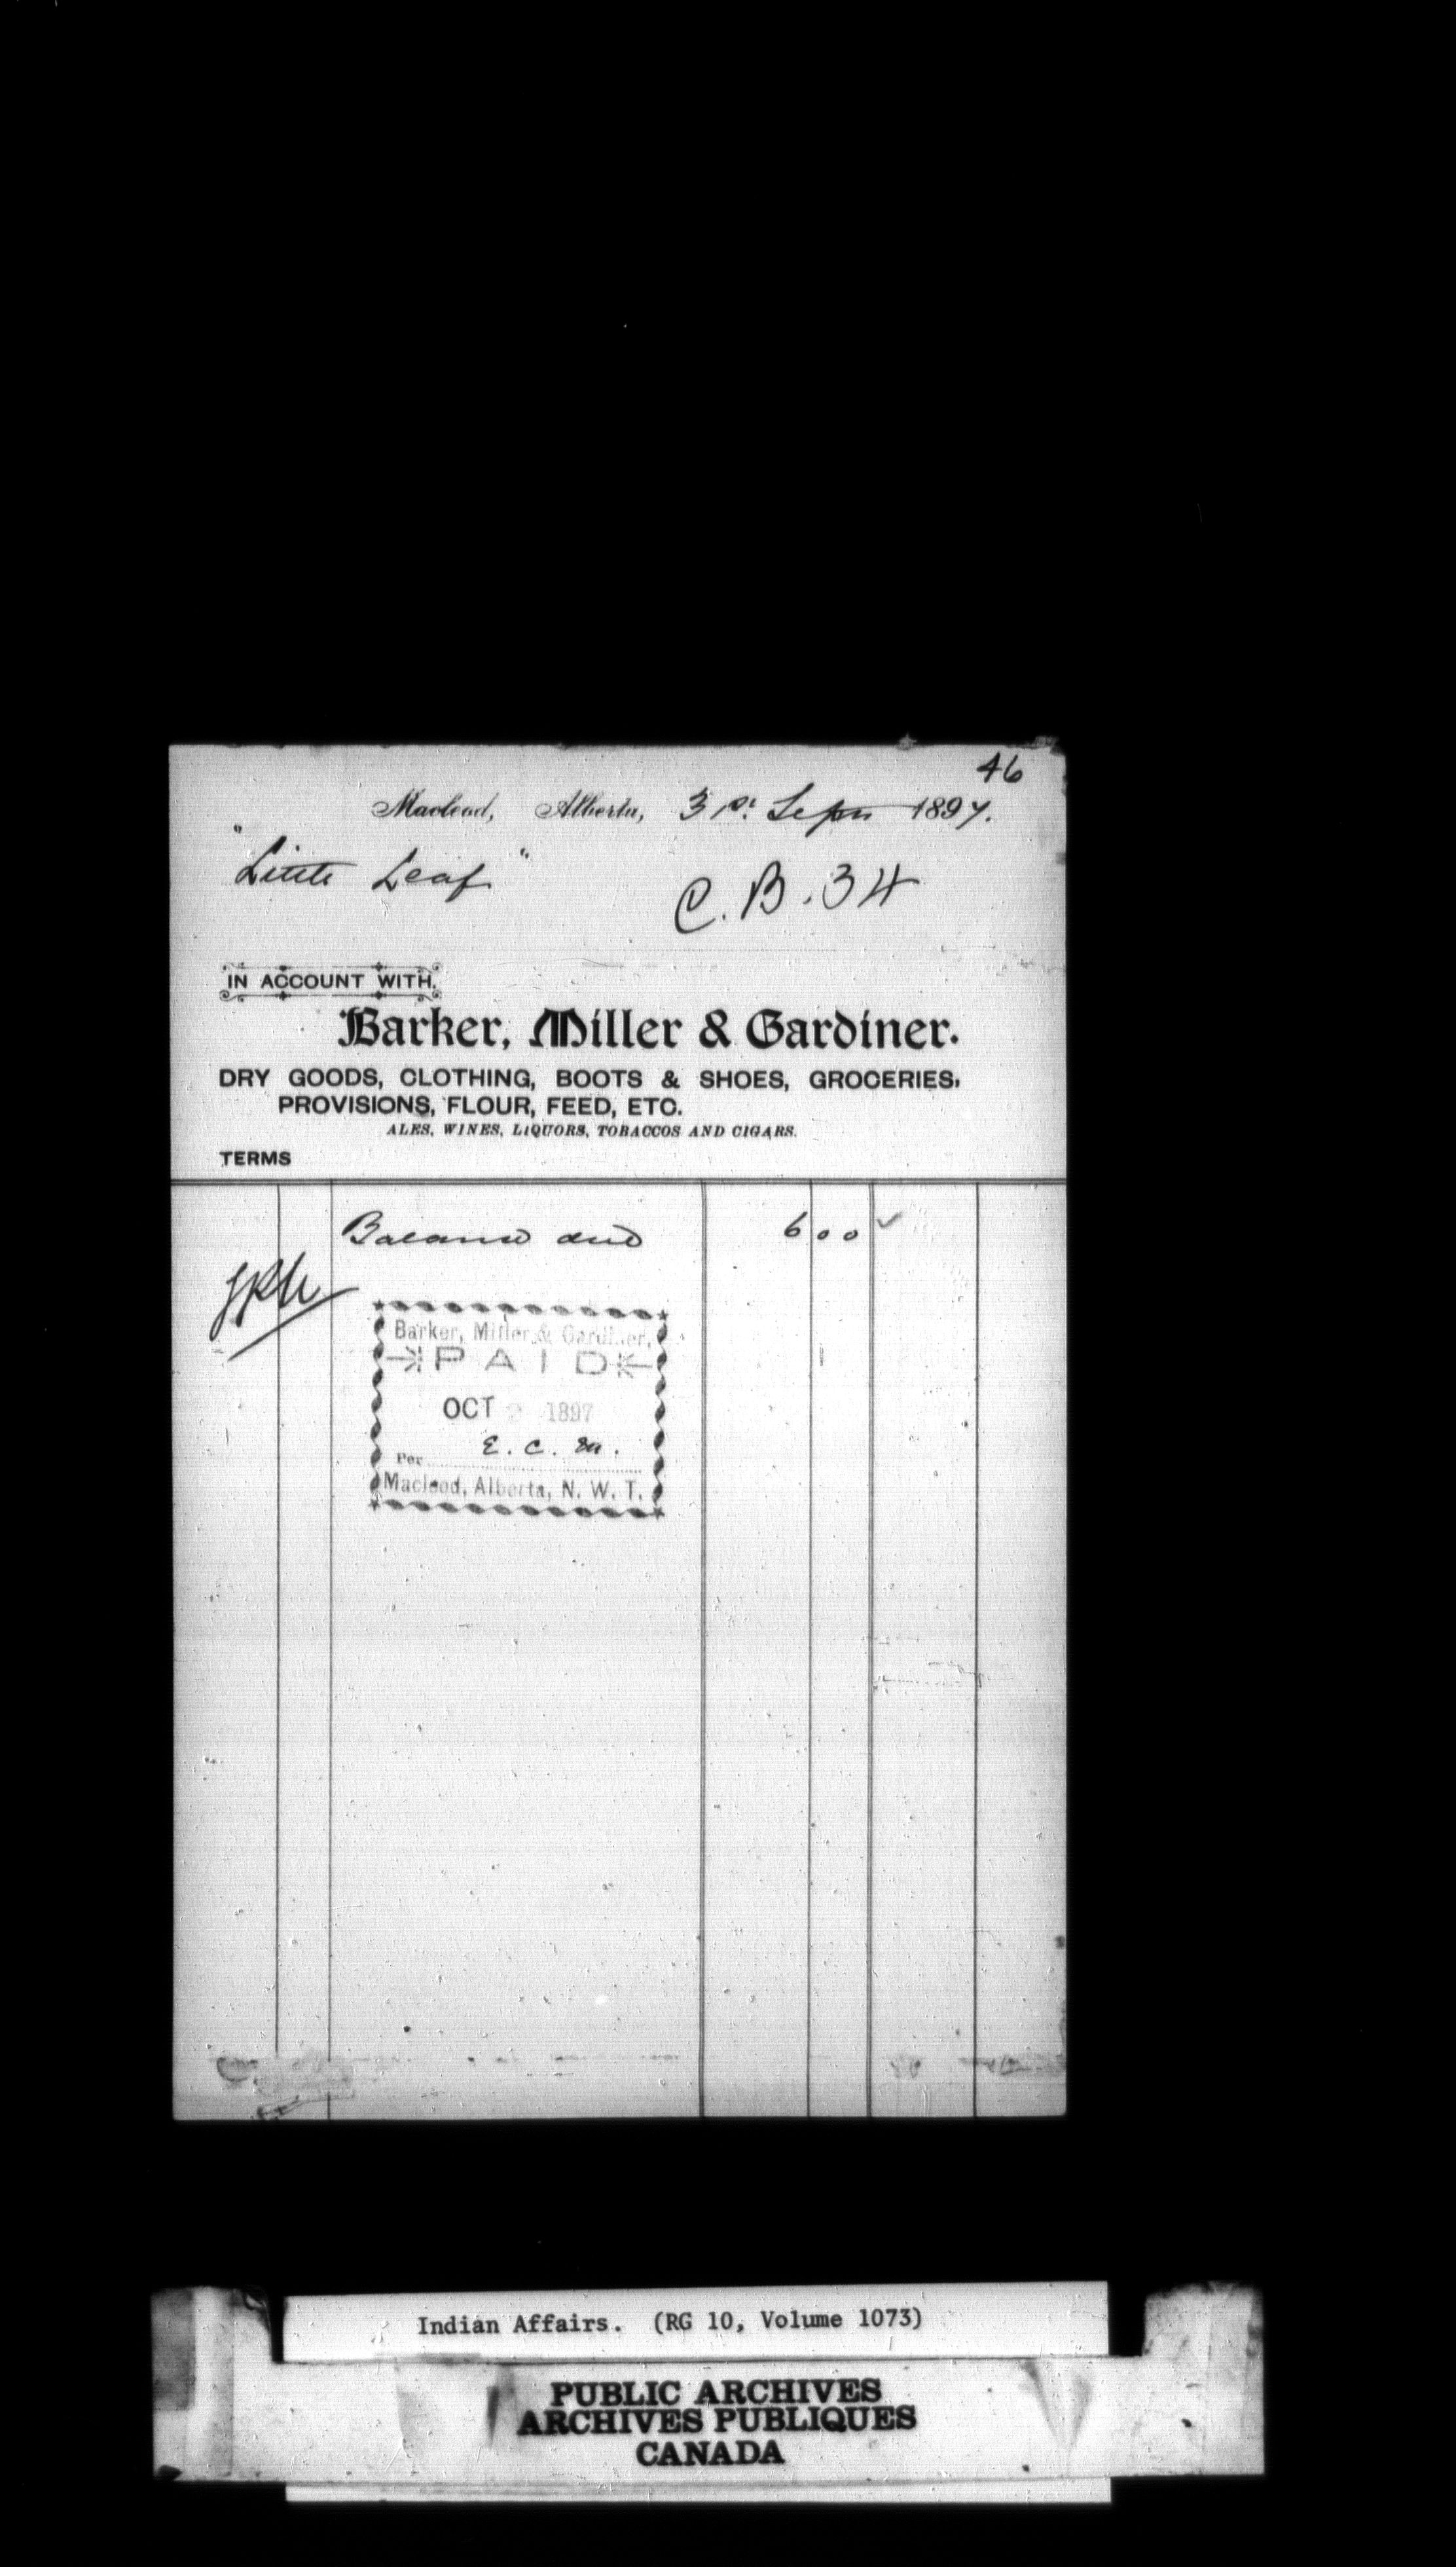 46
Macleod, Alberta, 31st Sepr 1897.
"Little Leaf"
C.B. 34
IN ACCOUNT WITH.
Barker, Miller & Gardiner.
DRY GOODS, CLOTHING, BOOTS & SHOES, GROCERIES,
PROVISIONS, FLOUR, FEED, ETC.
ALES, WINES, LIQUORS, TOBACCOS AND CIGARS.
TERMS
Balance due 6 00 ✓
Barker, Miller & Gardiner,
PAID
OCT 2 1897
Per E. C. M.
Macleod, Alberta, N. W. T.
Indian Affairs. (RG 10, Volume 1073)
PUBLIC ARCHIVES
ARCHIVES PUBLIQUES
CANADA